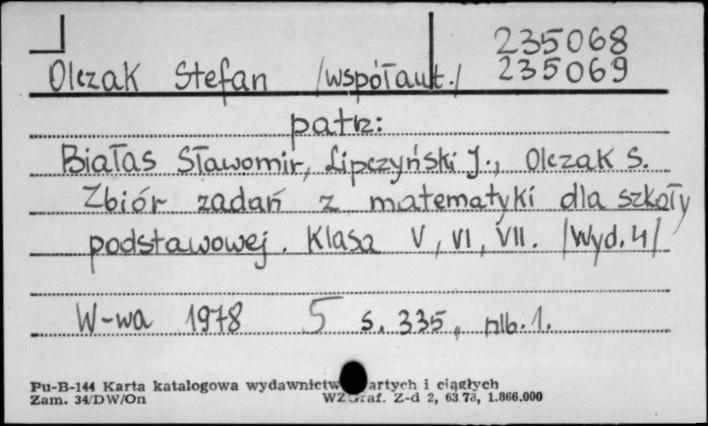 235068
Olczak Stefan /współaut./ 235069
patrz:
Białas Sławomir, Lipczyński J., Olczak S.
Zbiór zadań z matematyki dla szkoły
podstawowej. Klasa V, VI, VII. /Wyd. 4/
W-wa 1978 5 s. 335, nlb. 1.
Pu-B-144 Karta katalogowa wydawnictw artych i ciągłych
Zam. 34/DW/On WZGraf. Z-d 2, 63 78, 1.866.000